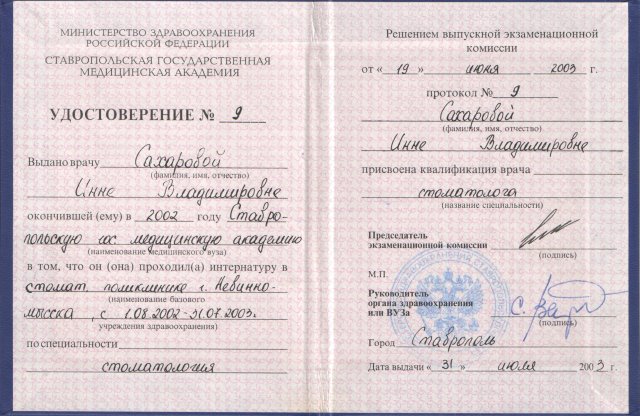 МИНИСТЕРСТВО ЗДРАВООХРАНЕНИЯ
РОССИЙСКОЙ ФЕДЕРАЦИИ
СТАВРОПОЛЬСКАЯ ГОСУДАРСТВЕННАЯ
МЕДИЦИНСКАЯ АКАДЕМИЯ
УДОСТОВЕРЕНИЕ № 9
Выдано врачу Сахаровой
(фамилия, имя, отчество)
Инне Владимировне
окончившей (ему) в 2002 году Ставро-
польскую гос. медицинскую академию
(наименование медицинского вуза)
в том, что он (она) проходил(а) интернатуру в
стомат. поликлинике г. Невинно-
(наименование базового
мысска, с 1.08.2002-31.07.2003г.
учреждения здравоохранения)
по специальности
стоматология
Решением выпускной экзаменационной
комиссии
от « 19 » июня 2003 г.
протокол № 9
Сахаровой
(фамилия, имя, отчество)
Инне Владимировне
присвоена квалификация врача
стоматолога
(название специальности)
Председатель
экзаменационной комиссии
(подпись)
М.П.
Руководитель
органа здравоохранения
или ВУЗа
(подпись)
Город Ставрополь
Дата выдачи « 31 » июля 2003 г.